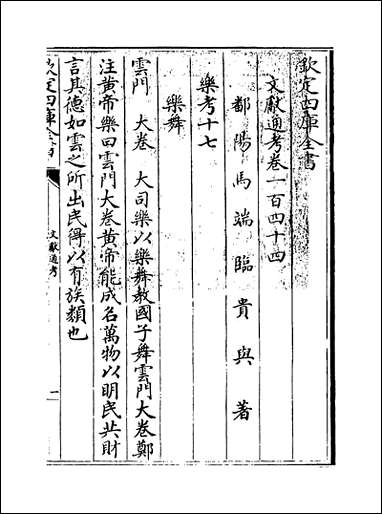 欽定四庫全書
文獻通考卷一百四十四
鄱陽馬端臨貴與著
樂考十七
樂舞
雲門 大卷 大司樂以樂舞教國子舞雲門大卷鄭
注黃帝樂曰雲門大卷黃帝能成名萬物以明民共財
言其德如雲之所出民得以有族類也
欽定四庫全書
文獻通考
一